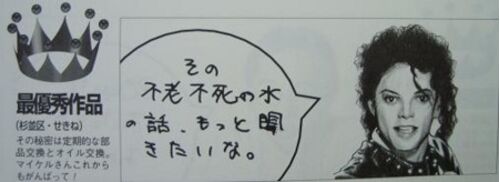 最優秀作品
(杉並区・せきね)
その秘密は定期的な部
品交換とオイル交換。
マイケルさんこれから
もがんばって!
その
不老不死の水
の話、もっと聞
きたいな。